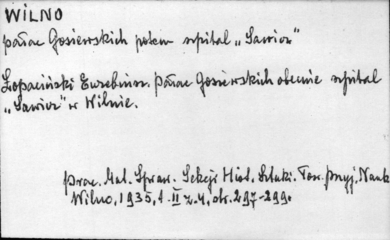 WILNO
pałac Gosiewskich potem szpital „Sawicz"
Łopaciński Euzebiusz. Pałac Gosiewskich obecnie szpital
„Sawicz" w Wilnie.
Prac. Mat. Spraw. Sekcji Hist. Sztuki. Tow. Przyj. Nauk
Wilno, 1935, t. II z. 4, str. 297-299.